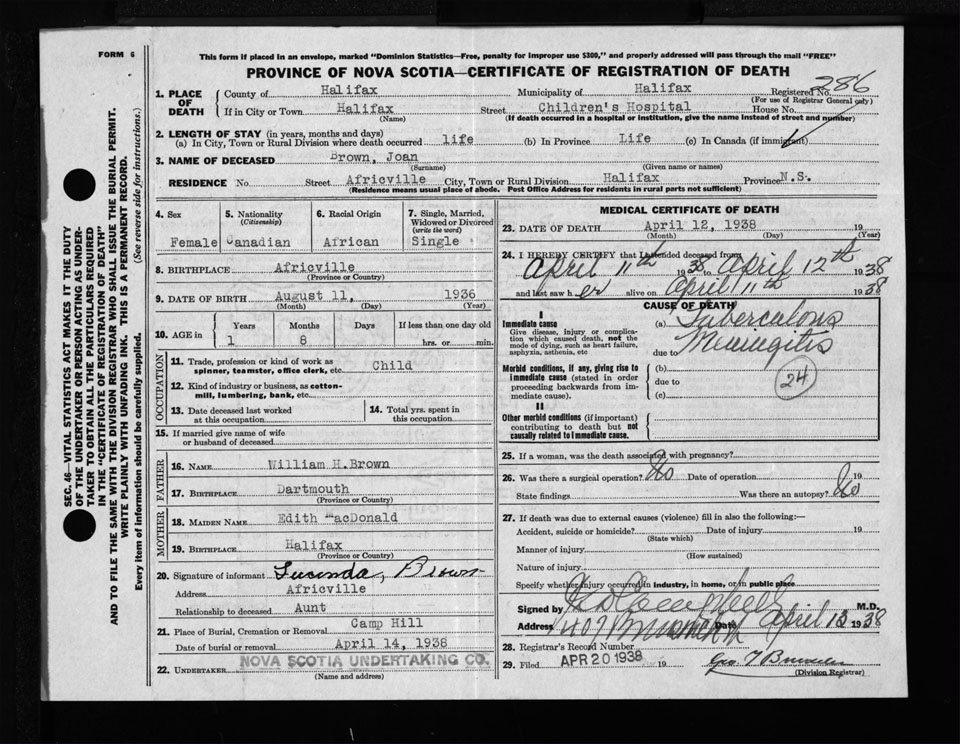 FORM 6
This form if placed in an envelope, marked "Dominion Statistics—Free, penalty for improper use $300," and properly addressed will pass through the mail "FREE"
PROVINCE OF NOVA SCOTIA—CERTIFICATE OF REGISTRATION OF DEATH
SEC. 46—VITAL STATISTICS ACT MAKES IT THE DUTY
OF THE UNDERTAKER OR PERSON ACTING AS UNDER-
TAKER TO OBTAIN ALL THE PARTICULARS REQUIRED
IN THE "CERTIFICATE OF REGISTRATION OF DEATH"
AND TO FILE THE SAME WITH THE DIVISION REGISTRAR WHO SHALL ISSUE THE BURIAL PERMIT.
WRITE PLAINLY WITH UNFADING INK. THIS IS A PERMANENT RECORD.
Every item of information should be carefully supplied. (See reverse side for instructions.)
1. PLACE OF DEATH County of Halifax Municipality of Halifax Registered No. 286
(For use of Registrar General only)
If in City or Town Halifax Street Children's Hospital House No.
(Name) (If death occurred in a hospital or institution, give the name instead of street and number)
2. LENGTH OF STAY (in years, months and days)
(a) In City, Town or Rural Division where death occurred life (b) In Province Life (c) In Canada (if immigrant)
3. NAME OF DECEASED Brown, Joan
(Surname) (Given name or names)
RESIDENCE No. Street Africville City, Town or Rural Division Halifax Province N.S.
(Residence means usual place of abode. Post Office Address for residents in rural parts not sufficient)
4. Sex Female
5. Nationality (Citizenship) Canadian
6. Racial Origin African
7. Single, Married, Widowed or Divorced (write the word) Single
8. BIRTHPLACE Africville
(Province or Country)
9. DATE OF BIRTH August 11, 1936
(Month) (Day) (Year)
10. AGE in Years Months Days If less than one day old
1 8 hrs. or min.
OCCUPATION
11. Trade, profession or kind of work as
spinner, teamster, office clerk, etc. Child
12. Kind of industry or business, as cotton-
mill, lumbering, bank, etc.
13. Date deceased last worked
at this occupation
14. Total yrs. spent in
this occupation
15. If married give name of wife
or husband of deceased
FATHER
16. NAME William H. Brown
17. BIRTHPLACE Dartmouth
(Province or Country)
MOTHER
18. MAIDEN NAME Edith MacDonald
19. BIRTHPLACE Halifax
(Province or Country)
20. Signature of informant Lucinda, Brown
Address Africville
Relationship to deceased Aunt
21. Place of Burial, Cremation or Removal Camp Hill
Date of burial or removal April 14, 1938
22. UNDERTAKER NOVA SCOTIA UNDERTAKING CO.
(Name and address)
MEDICAL CERTIFICATE OF DEATH
23. DATE OF DEATH April 12, 1938 19
(Month) (Day) (Year)
24. I HEREBY CERTIFY that I attended deceased from
April 11th 1938 to April 12th 1938
and last saw her alive on April 11th 1938
CAUSE OF DEATH
I
Immediate cause (a) Tuberculous
Give disease, injury or complica-
tion which caused death, not the
mode of dying, such as heart failure,
asphyxia, asthenia, etc due to Meningitis
Morbid conditions, if any, giving rise to (b)
immediate cause (stated in order due to 24
proceeding backwards from im- (c)
mediate cause).
II
Other morbid conditions (if important)
contributing to death but not
causally related to immediate cause.
25. If a woman, was the death associated with pregnancy?
26. Was there a surgical operation? No Date of operation 19
State findings Was there an autopsy? No
27. If death was due to external causes (violence) fill in also the following:—
Accident, suicide or homicide? Date of injury 19
(State which)
Manner of injury
(How sustained)
Nature of injury
Specify whether injury occurred in industry, in home, or in public place
Signed by Campbell M.D.
Address 407 Date April 13 1938
28. Registrar's Record No.
29. Filed APR 20 1938 19
(Division Registrar)